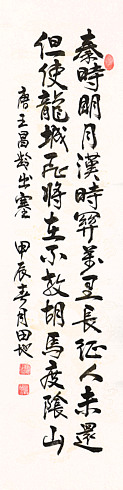 秦時明月漢時関萬里長征人未還
但使龍城飛將在不教胡馬度陰山
唐王昌齡出塞 甲辰春月田地